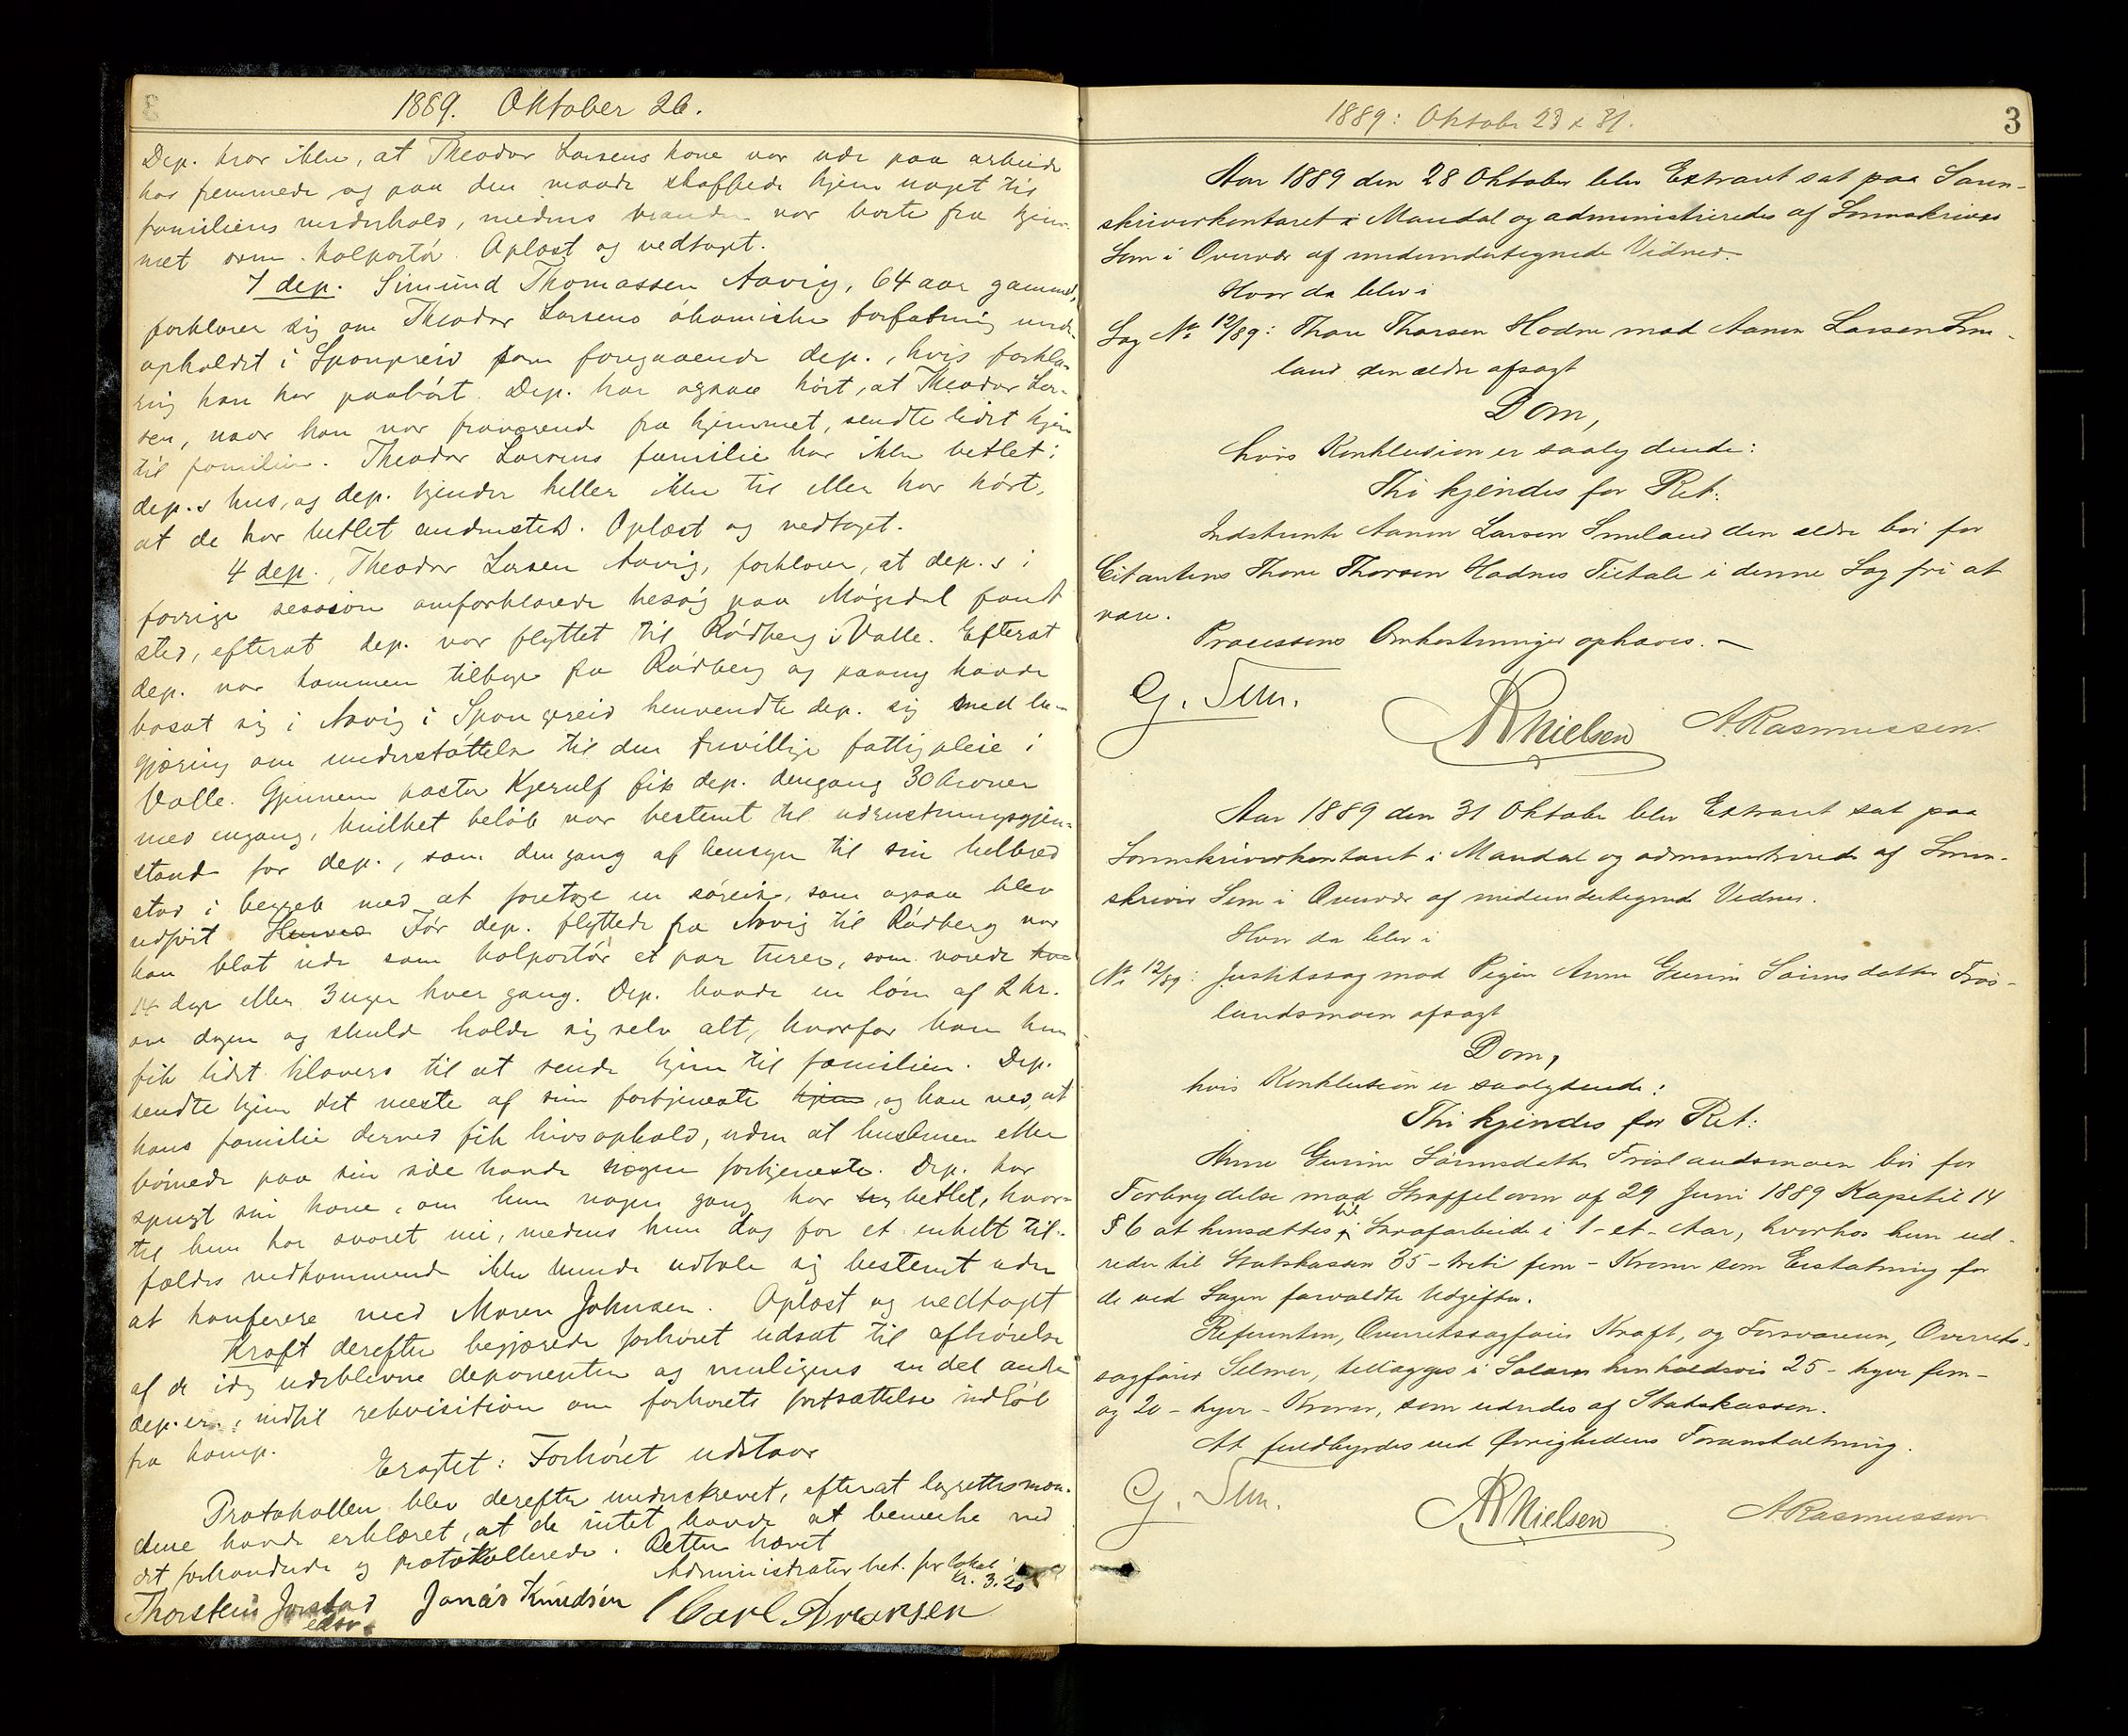 1889. Oktober 26.
Dep. tror ikke, at Theodor Larsens kone var ude paa arbeide
hos fremmede og paa den maade skaffede hjem noget til
familiens underhold, medens manden var borte fra hjem-
met som kolportør. Oplæst og vedtaget.
7 dep. Simund Thomassen Aavig, 64 aar gammel,
forklarer sig om Theodor Larsens økomiske forfatning under
opholdet i Spangreid som foregaaende dep., hvis forkla-
ring han har paahørt. Dep. har ogsaa hørt, at Theodor Lar-
sen, naar han var fraværende fra hjemmet, sendte lidt hjem
til familien. Theodor Larsens familie har ikke betlet i
dep.s hus, og dep. kjender heller ikke til eller har hørt,
at de har betlet andensteds. Oplæst og vedtaget.
4 dep., Theodor Larsen Aavig, forklarer, at dep.s i
forrige session omforklarede besøg paa Møgedal fandt
sted, efterat dep. var flyttet til Rødberg i Valle. Efterat
dep. var kommen tilbage fra Rødberg og paany havde
bosat sig i Aavig i Spangereid henvendte dep. sig med be-
gjæring om understøttelse til den frivillige fattigpleie i
Valle. Gjennem pastor Kjerulf fik dep. dengang 30 kroner
med engang, hvilket beløb var bestemt til udrustningsgjen-
stande for dep., som dengang af hensyn til sin helbred
stod i begreb med at foretage en søreise, som ogsaa blev
udført. Før dep. flyttede fra Aavig til Rødberg var
han blot ude som kolportør et par turer, som varede
14 dage eller 3 uger hver gang. Dep. havde en løn af 2 kr.
om dagen og skulde holde sig selv alt, hvorfor han kun
fik lidt tilovers til at sende hjem til familien. Dep.
sendte hjem det meste af sin fortjeneste hjem, og han ved, at
hans familie derved fik livsophold, uden at hustruen eller
børnede paa sin side havde nogen fortjeneste. Dep. har
spurgt sin kone, om hun nogen gang har betlet, hvor-
til hun har svaret nei, medens hun dog for et enkelt til-
fældes vedkommende ikke kunde udtale sig bestemt uden
at konferere med Maren Johnsen. Oplæst og vedtaget
Kraft derefter begjærede forhøret udsat til afhørelse
af de idag udeblevne deponenter og muligens en del andre
dep.er, indtil rekvisition om forhørets fortsættelse indløb
fra komp.
Eragtet: Forhøret udstaar
Protokollen blev derefter underskrevet, efterat lagrettesmæn-
dene havde erklæret, at de intet havde at bemerke ved
det forhandlede og protokollerede. Retten hævet
Administrator bet. for lokal kr. 3.20
Thorstein Jaastad Jonas Knudsen Carl Arvesen
edsv.
1889: Oktobr 23 & 31.
3
Aar 1889 den 28 Oktober blev Extraret sat paa Soren-
skriverkontoret i Mandal og administreredes af Sorenskriver
Sem i Overvær af medundertegnede Vidner.
Hvor da blev i
Sag No 12/89: Thore Thorsen Hodne mod Aanen Larsen Sme-
land den ældre afsagt
Dom,
hvis Konklusion er saalydende:
Thi kjendes for Ret:
Indstevnte Aanen Larsen Smeland den ældre bør for
Citantens Thore Thorsen Hodnes Tiltale i denne Sag fri at
være.
Processens Omkostninger ophæves. –
G. Sem. ARNielsen A. Rasmussen.
Aar 1889 den 31 Oktober blev Extraret sat paa
Sorenskriverkontoret i Mandal og administreredes af Soren-
skriver Sem i Overvær af medundertegnede Vidner.
Hvor da blev i
No 12/89: Justitssag mod Pigen Anne Gurine Sørensdatter Frøs-
landsmoen afsagt
Dom,
hvis Konklusion er saalydende:
Thi kjendes for Ret:
Anne Gurine Sørensdatter Frøslandsmoen bør for
Forbrydelse mod Straffeloven af 29 Juni 1889 Kapitel 14
§ 6 at hensættes til Strafarbeide i 1 - et - Aar, hvorhos hun ud-
reder til Statskassen 35 - treti fem - Kroner som Erstatning for
de ved Sagen forvoldte Udgifter.
Referenten, Overretssagfører Kraft, og Forsvareren, Overrets-
sagfører Selmer, tillægges i Salær henholdsvis 25 - tyve fem -
og 20 - tyve - Kroner, som udredes af Statskassen.
At fuldbyrdes ved Øvrighedens Foranstaltning.
G. Sem. ARNielsen A. Rasmussen